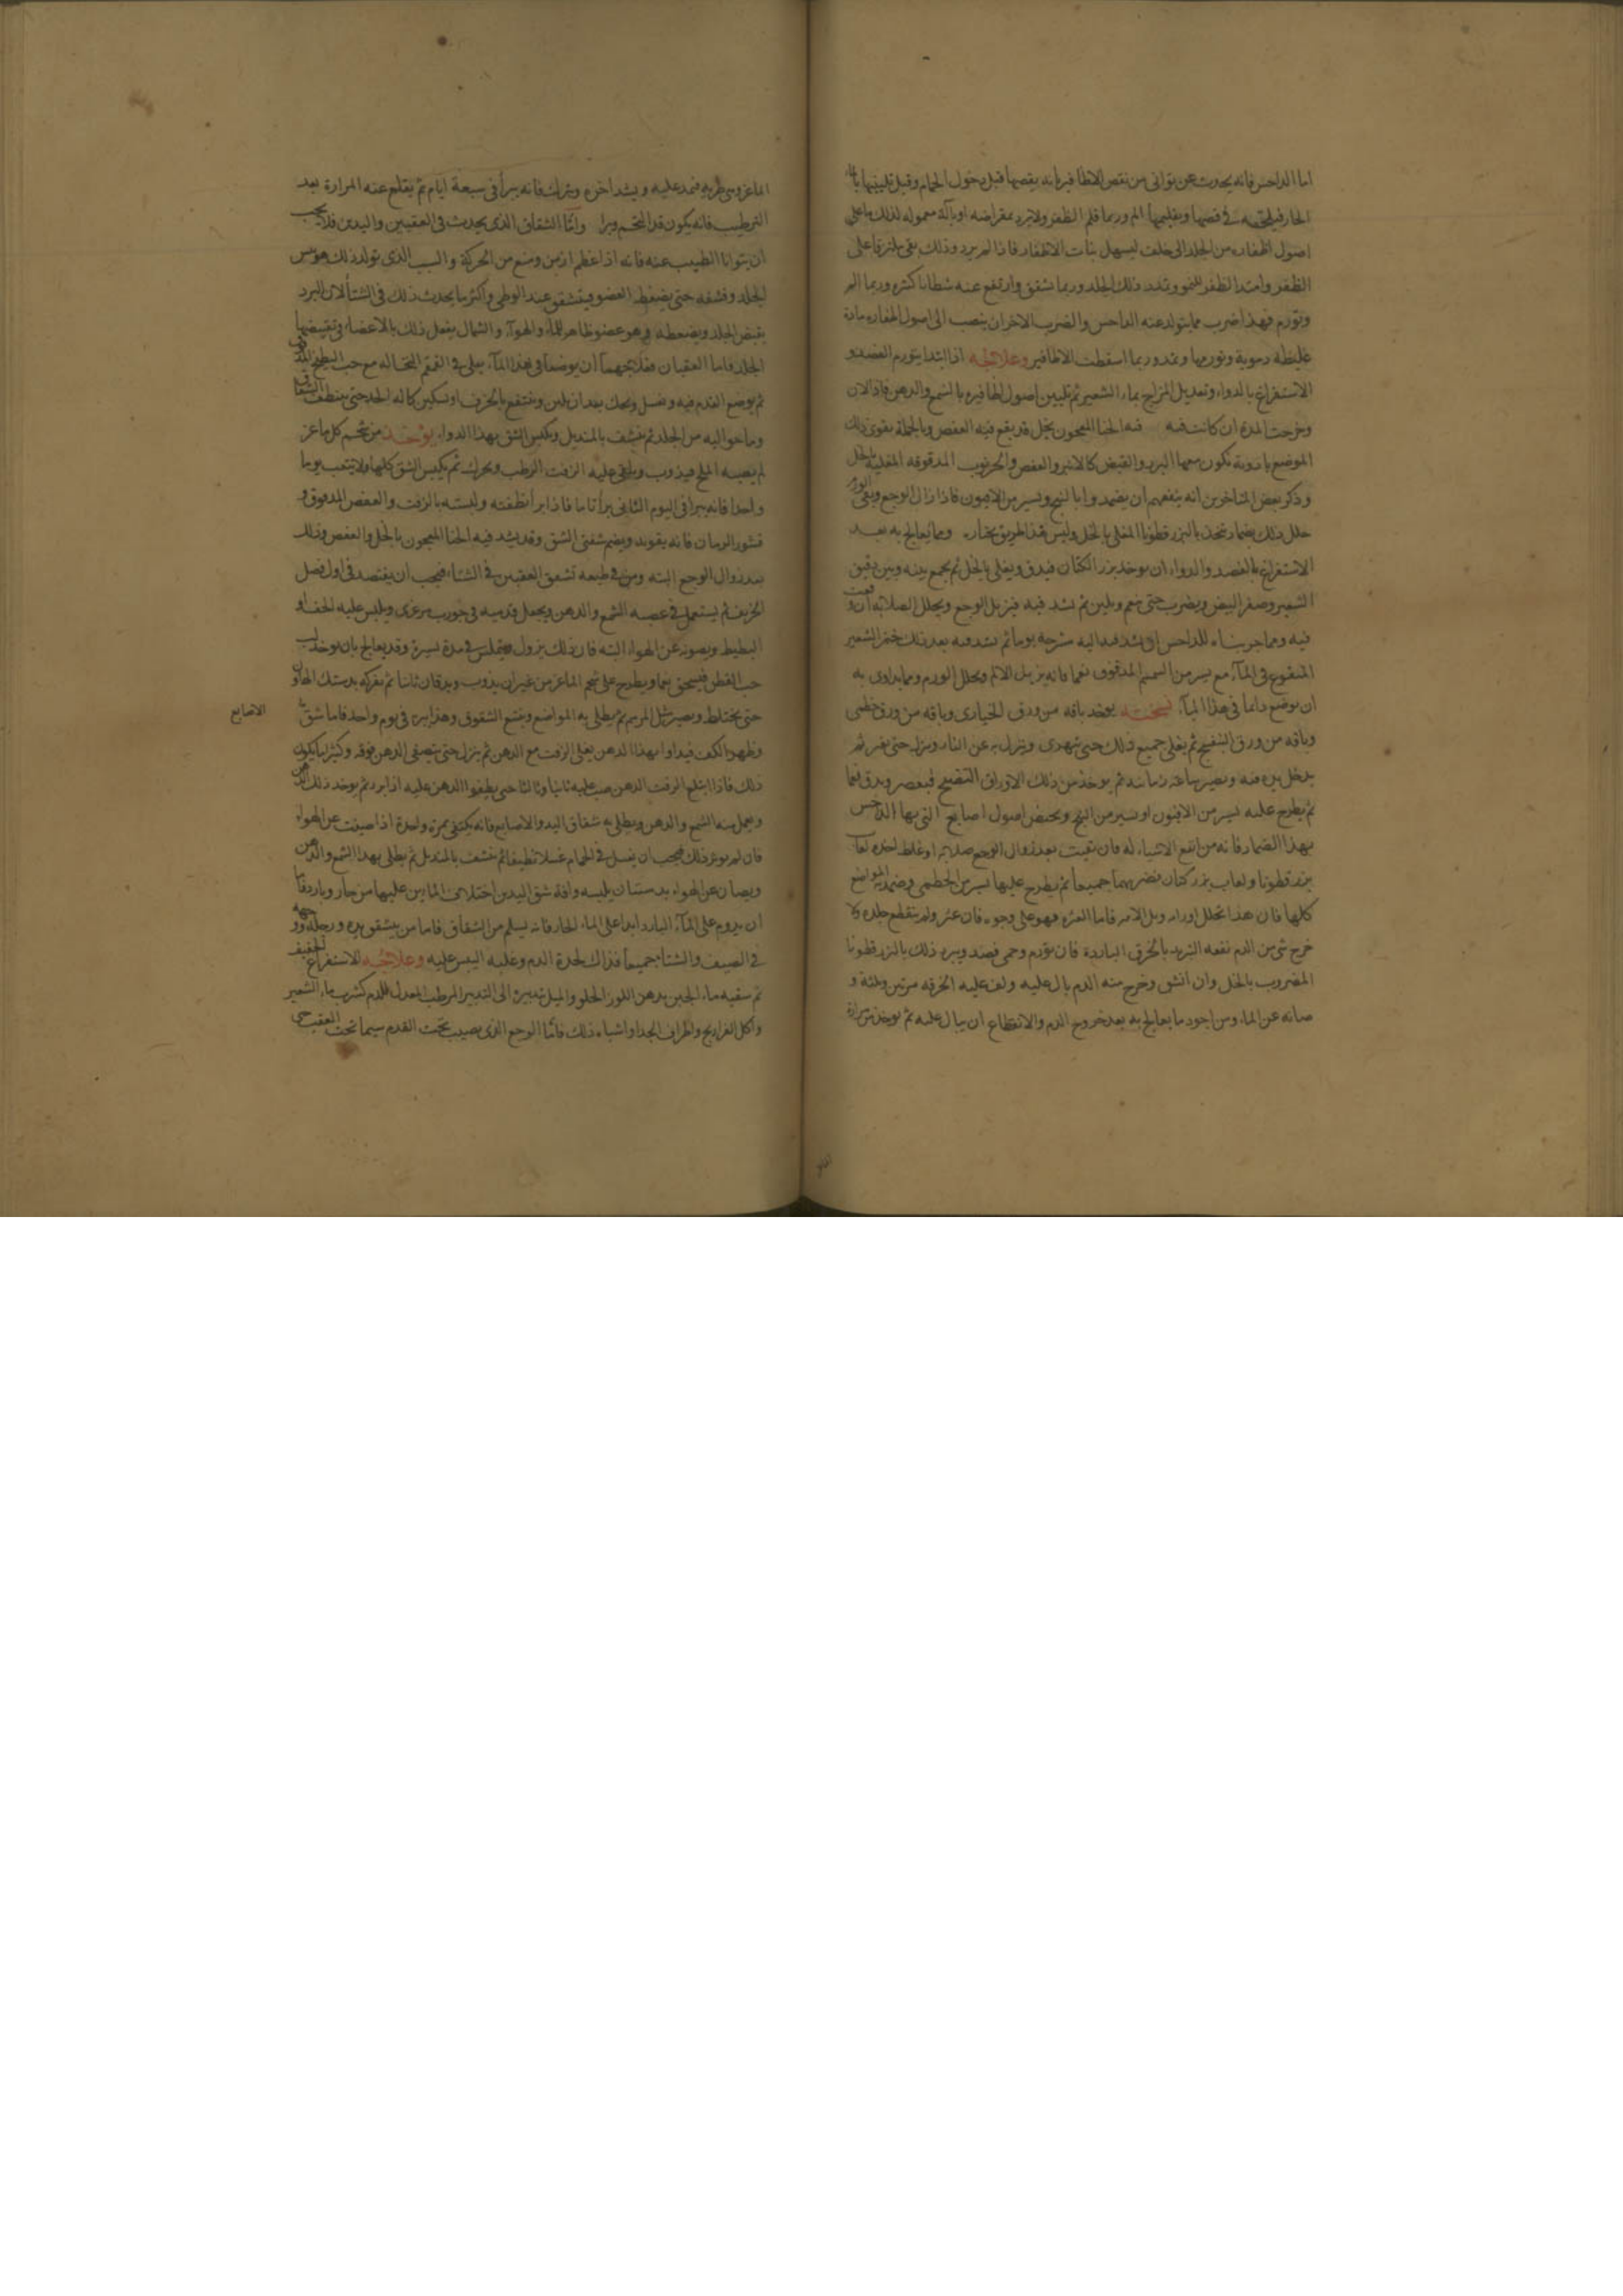 اما الداحس فانه يحدث عن تواني من يقص الاظافير بانه يقصها قبل دخول الحمام وقبل تليينها بالماء
الحار فيلحقه في قصها وتقليمها الم وربما قلم الظفر ولا يرد بمقراضه او بآلة معموله لذلك ما على
اصول اظفاره من الجلد الى خلف ليسهل نبات الاظفار فاذا لم يرد وذلك بقى ملتزقا على
الظفر وامتد الظفر للنمو وتمدد ذلك الجلد وربما تشقق وارتفع عنه شظايا كثيره وربما الم
وتورم فهذا ضرب مما يتولد عنه الداحس والضرب الاخر ان ينصب الى اصول اظفاره مادة
غليظه دموية وتورمها وتمدد وربما اسقطت الاظافير وعلاجه اذا ابتدا يتورم الفصد و
الاستفراغ بالدواء وتعديل المزاج بماء الشعير ثم تليين اصول اظافيره بالشمع والدهن فاذا لان
وخرجت المدة ان كانت فيه فيه الحنا المعجون بخل قد يقع فيه العفص وبالجملة يقوى ذلك
الموضع بادوية تكون معها البرد والقبض والعفص والخرنوب المدقوقه المغليه بالخل
وذكر بعض المتاخرين انه ينفعهم ان يضمدوا بالبنج ويسير من الافيون فاذا زال الوجع وبقى الورم
حلل ذلك بضماد يتخذ بالبزر قطونا المغلى بالخل وليس هذا طريق مختار ومما يعالج به بعد
الاستفراغ بالفصد والدواء ان يوخذ بزر الكتان فيدق ويغلى بالخل ثم يجمع بينه وبين دقيق
الشعير وصفر البيض ويضرب حتى ينعم ويلين ثم يشد فيه فيزيل الوجع ويحلل الصلابه ان وقعت
فيه ومما جربناه للداحس ان يشد فيه اليه يوما ثم يشد فيه بعد ذلك خبز الشعير
المنقوع في المآء مع يسير من السمسم المدقوق نعما فانه يزيل الالم ويحلل الورم ومما يداوى به
ان يوضع دايما في هذا المآء نسخته يوخذ باقه من ورق الخبازى وباقه من ورق خطمى
وباقه من ورق البنفسج ثم يغلى جميع ذلك حتى يتهرى وينزل به عن النار ويترك حتى يفتر ثم
يدخل يده فيه ويصبر ساعة زمانية ثم يوخذ من ذلك الاوراق النضيج فيعصر ويدق نعما
ثم يطرح عليه يسير من الافيون او يسير من البنج ويحتضن اصول اصابع التى بها الداحس
بهذا الضماد فانه من انفع الاشياء له فان بقيت بعد زوال الوجع صلابه او غلظ اخذ لعاب
بزر قطونا ولعاب بزر كتان فضربهما جميعا ثم يطرح عليها يسير من الخطمى وضمد المواضع
كلها فان هذا تحلل اورامه ويزيل الامه فاما العثره فهو على وجوه فان عثر ولم ينقطع جلده ولا
خرج شى من الدم نفعه التبريد بالخرق الباردة فان تورم وحمى فصد ويبرد ذلك بالبزر قطونا
المضروب بالخل وان انشق وخرج منه الدم بال عليه ولف عليه الخرقه مرتين وثلثة و
صانه عن الماء ومن اجود ما يعالج به بعد خروج الدم والانقطاع ان يبال عليه ثم يوخذ مرارة
الماعز
الماعز وهى طرية فتمد عليه ويشد اخره ويترك فانه يبرأ فى سبعة ايام ثم يقلع عنه المرارة بعد
الترطيب فانه يكون قد التحم وبرا وامّا الشقاق الذى يحدث فى العقبين واليدين فلا يجب
ان يتوانا الطبيب عنه فانه اذا عظم ازمن ومنع من الحركة والسبب الذى تولد ذلك هو يبس
الجلد وقشفه حتى يضغط العضو فيتشقق عند الوطى واكثر ما يحدث ذلك فى الشتا لان البرد
يقبض الجلد ويضغطه وهو عضو ظاهر للمآء والهوآء والشمال يفعل ذلك بالاعضاء فى تقبيضها
الجلد فاما العقبان فعلاجهما ان يوضعا فى هذا المآء يغلى فى القمقم النخاله مع حب البطيخ المدقوق
ثم يوضع القدم فيه ويغسل ويحك بعد ان يلين وينتفع بالخزف او بسكين كالة الحد حتى ينظف الشقاق
وما حواليه من الجلد ثم ينشف بالمنديل ويكبس الشق بهذا الدواء يوخذ من شحم كل ماعز
لم يصبه الملح فيذوب ويلقى عليه الزفت الرطب ويحرك ثم يكبس الشق كلها ولا يتعب يوما
واحدا فانه يبرا فى اليوم الثانى برأ تاما فاذا برأ نظفته ولبسته بالزفت والعفص المدقوق و
قشور الرمان فانه يقويه ويضم شفتى الشق وقد يشد فيه الحنا المعجون بالخل والعفص وذلك
بعد زوال الوجع البته ومن فى طبعه تشقق العقبين فى الشتاء فيجب ان يفتصد فى اول فصل
الخريف ثم يستعمل فى عقبه الشمع والدهن ويجعل قدميه فى جورب مرعزى ويلبس عليه الخف او
البطيط ويصونه عن الهواء البته فان ذلك يزول ويتملس فى مدة يسيرة وقد يعالج بان يوخذ لب
حب القطن فيسحق نعما ويطرح على شحم الماعز من غير ان يذوب ويدقان ثانيا ثم يفركه بدستك الهاون
حتى يختلط ويصير مثل المرهم ثم يطلى به المواضع وبضع الشقوق وهذا يبرء فى يوم واحد فاما شقاق
الاصابع
وظهر الكف فيداوا بهذا الدهن يغلى الزفت مع الدهن ثم ينزل حتى يصفى الدهن فوقه وكثير ما يكون
ذلك فاذا ابتلع الزفت الدهن صب عليه ثانيا وثالثا حتى يطفوا الدهن عليه اذا برد ثم يوخذ ذلك الدهن
ويعمل منه الشمع والدهن ويطلى به شقاق اليد والاصابع فانه يكتفى بمرة واحدة اذا صينت عن الهواء
فان لم ذلك فيجب ان يغسل فى الحمام غسلا نظيفا ثم ينشف بالمنديل ثم يطلى بهذا الشمع والدهن
ويصان عن الهواء بدستبان يلبسه وافة شق اليدين اختلاف المايين عليها من حار وبارد فاما
ان يدوم على المآء البارد ابدا على الماء الحار فانه يسلم من الشقاق فاما من يتشقق يده ورجله ووجهه
فى الصيف والشتآء جميعا فذاك لحدة الدم وغلبه اليبس عليه وعلاجه الاستفراغ الخفيف
ثم سقيه ماء الجبن بدهن اللوز الحلو والميل بتدبيره الى التدبير المرطب المعدل للدم كشرب ماء الشعير
واكل الفراريج واطراف الجدا واشباه ذلك فامّا الوجع الذى يصيب تحت القدم سيما تحت العقب حتى